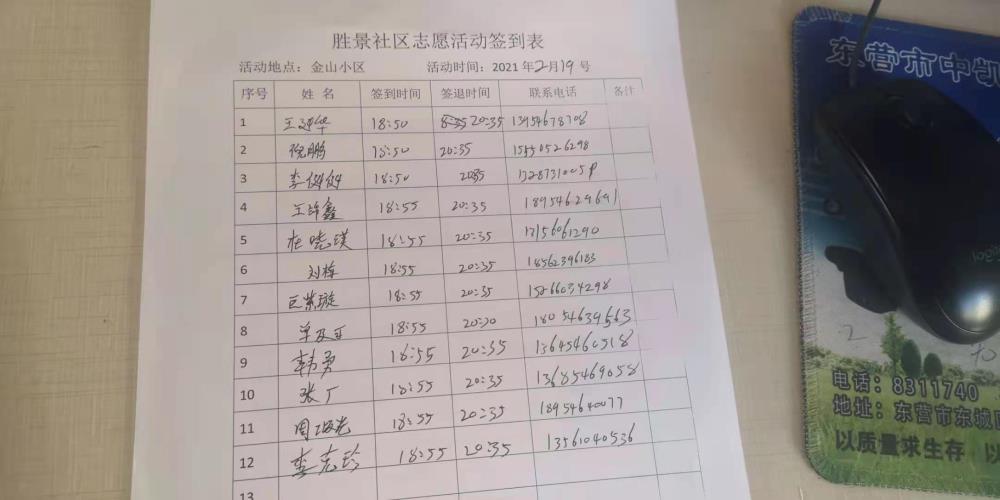 胜景社区志愿活动签到表
活动地点：金山小区 活动时间：2021年2月19号
序号 姓名 签到时间 签退时间 联系电话 备注
1 王 华 18:50 20:35 13954678708
2 倪鹏 18:50 20:35 15550526298
3 李 18:50 20:35
4 王 鑫 18:55 20:35 18954629691
5 杜晓瑛 18:55 20:35
6 刘栋 18:55 20:35 18562396183
7 巨紫璇 18:55 20:35 15266034298
8 单 18:55 20:30 18054639563
9 韩勇 18:55 20:35 13645460518
10 张广 18:55 20:35 13685469058
11 周 18:55 20:35 18954640077
12 李克玲 18:55 20:35 13561040536
13
东营市中凯
电话：8311740
地址：东营市东城
以质量求生存 以